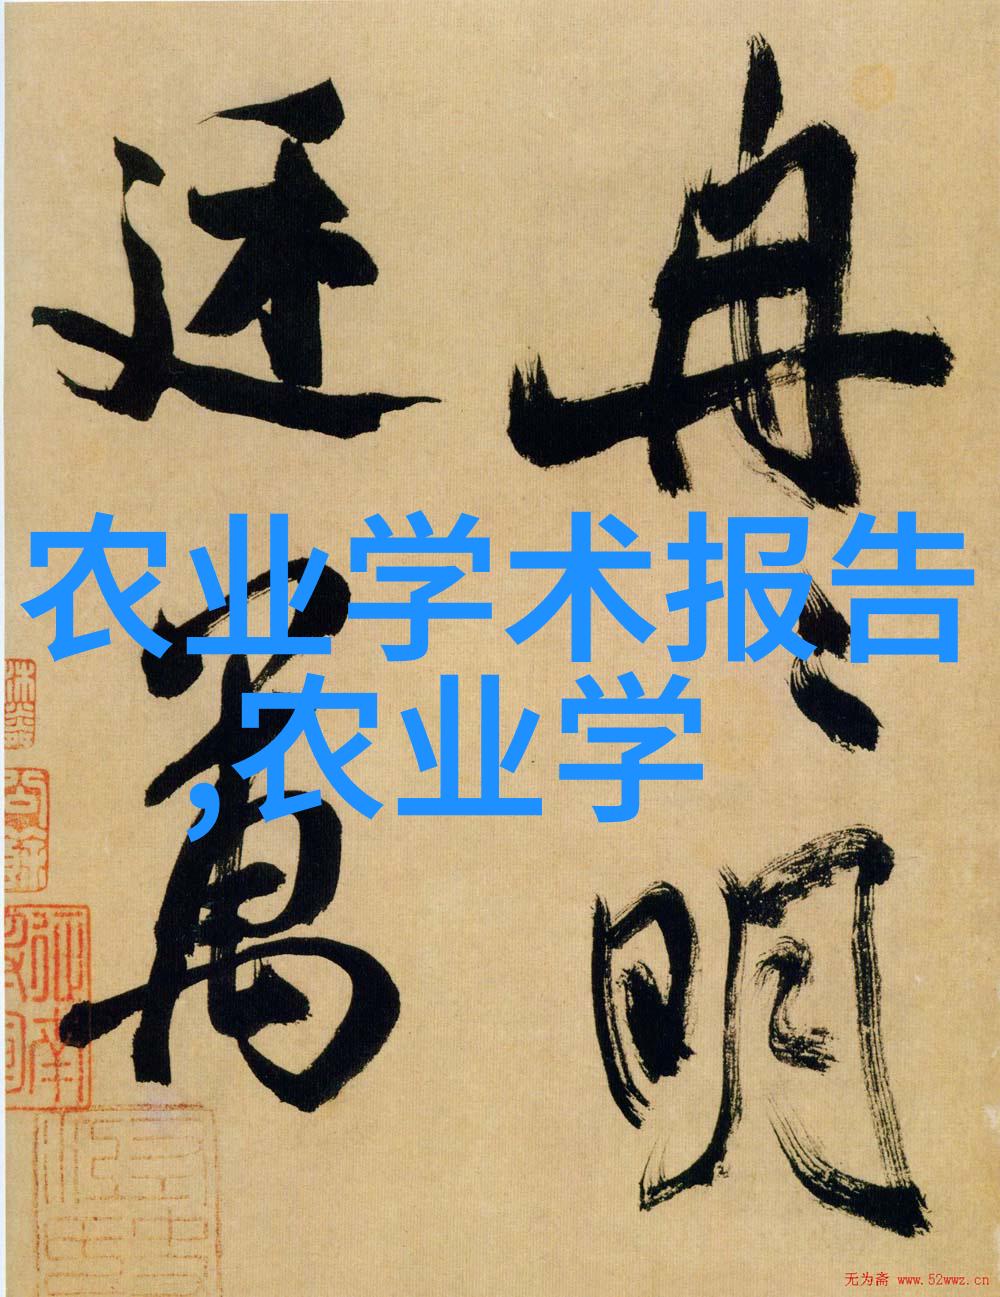 冉々明
廷萬
农业学术报告
,农业学
无为斋 www.52wwz.cn